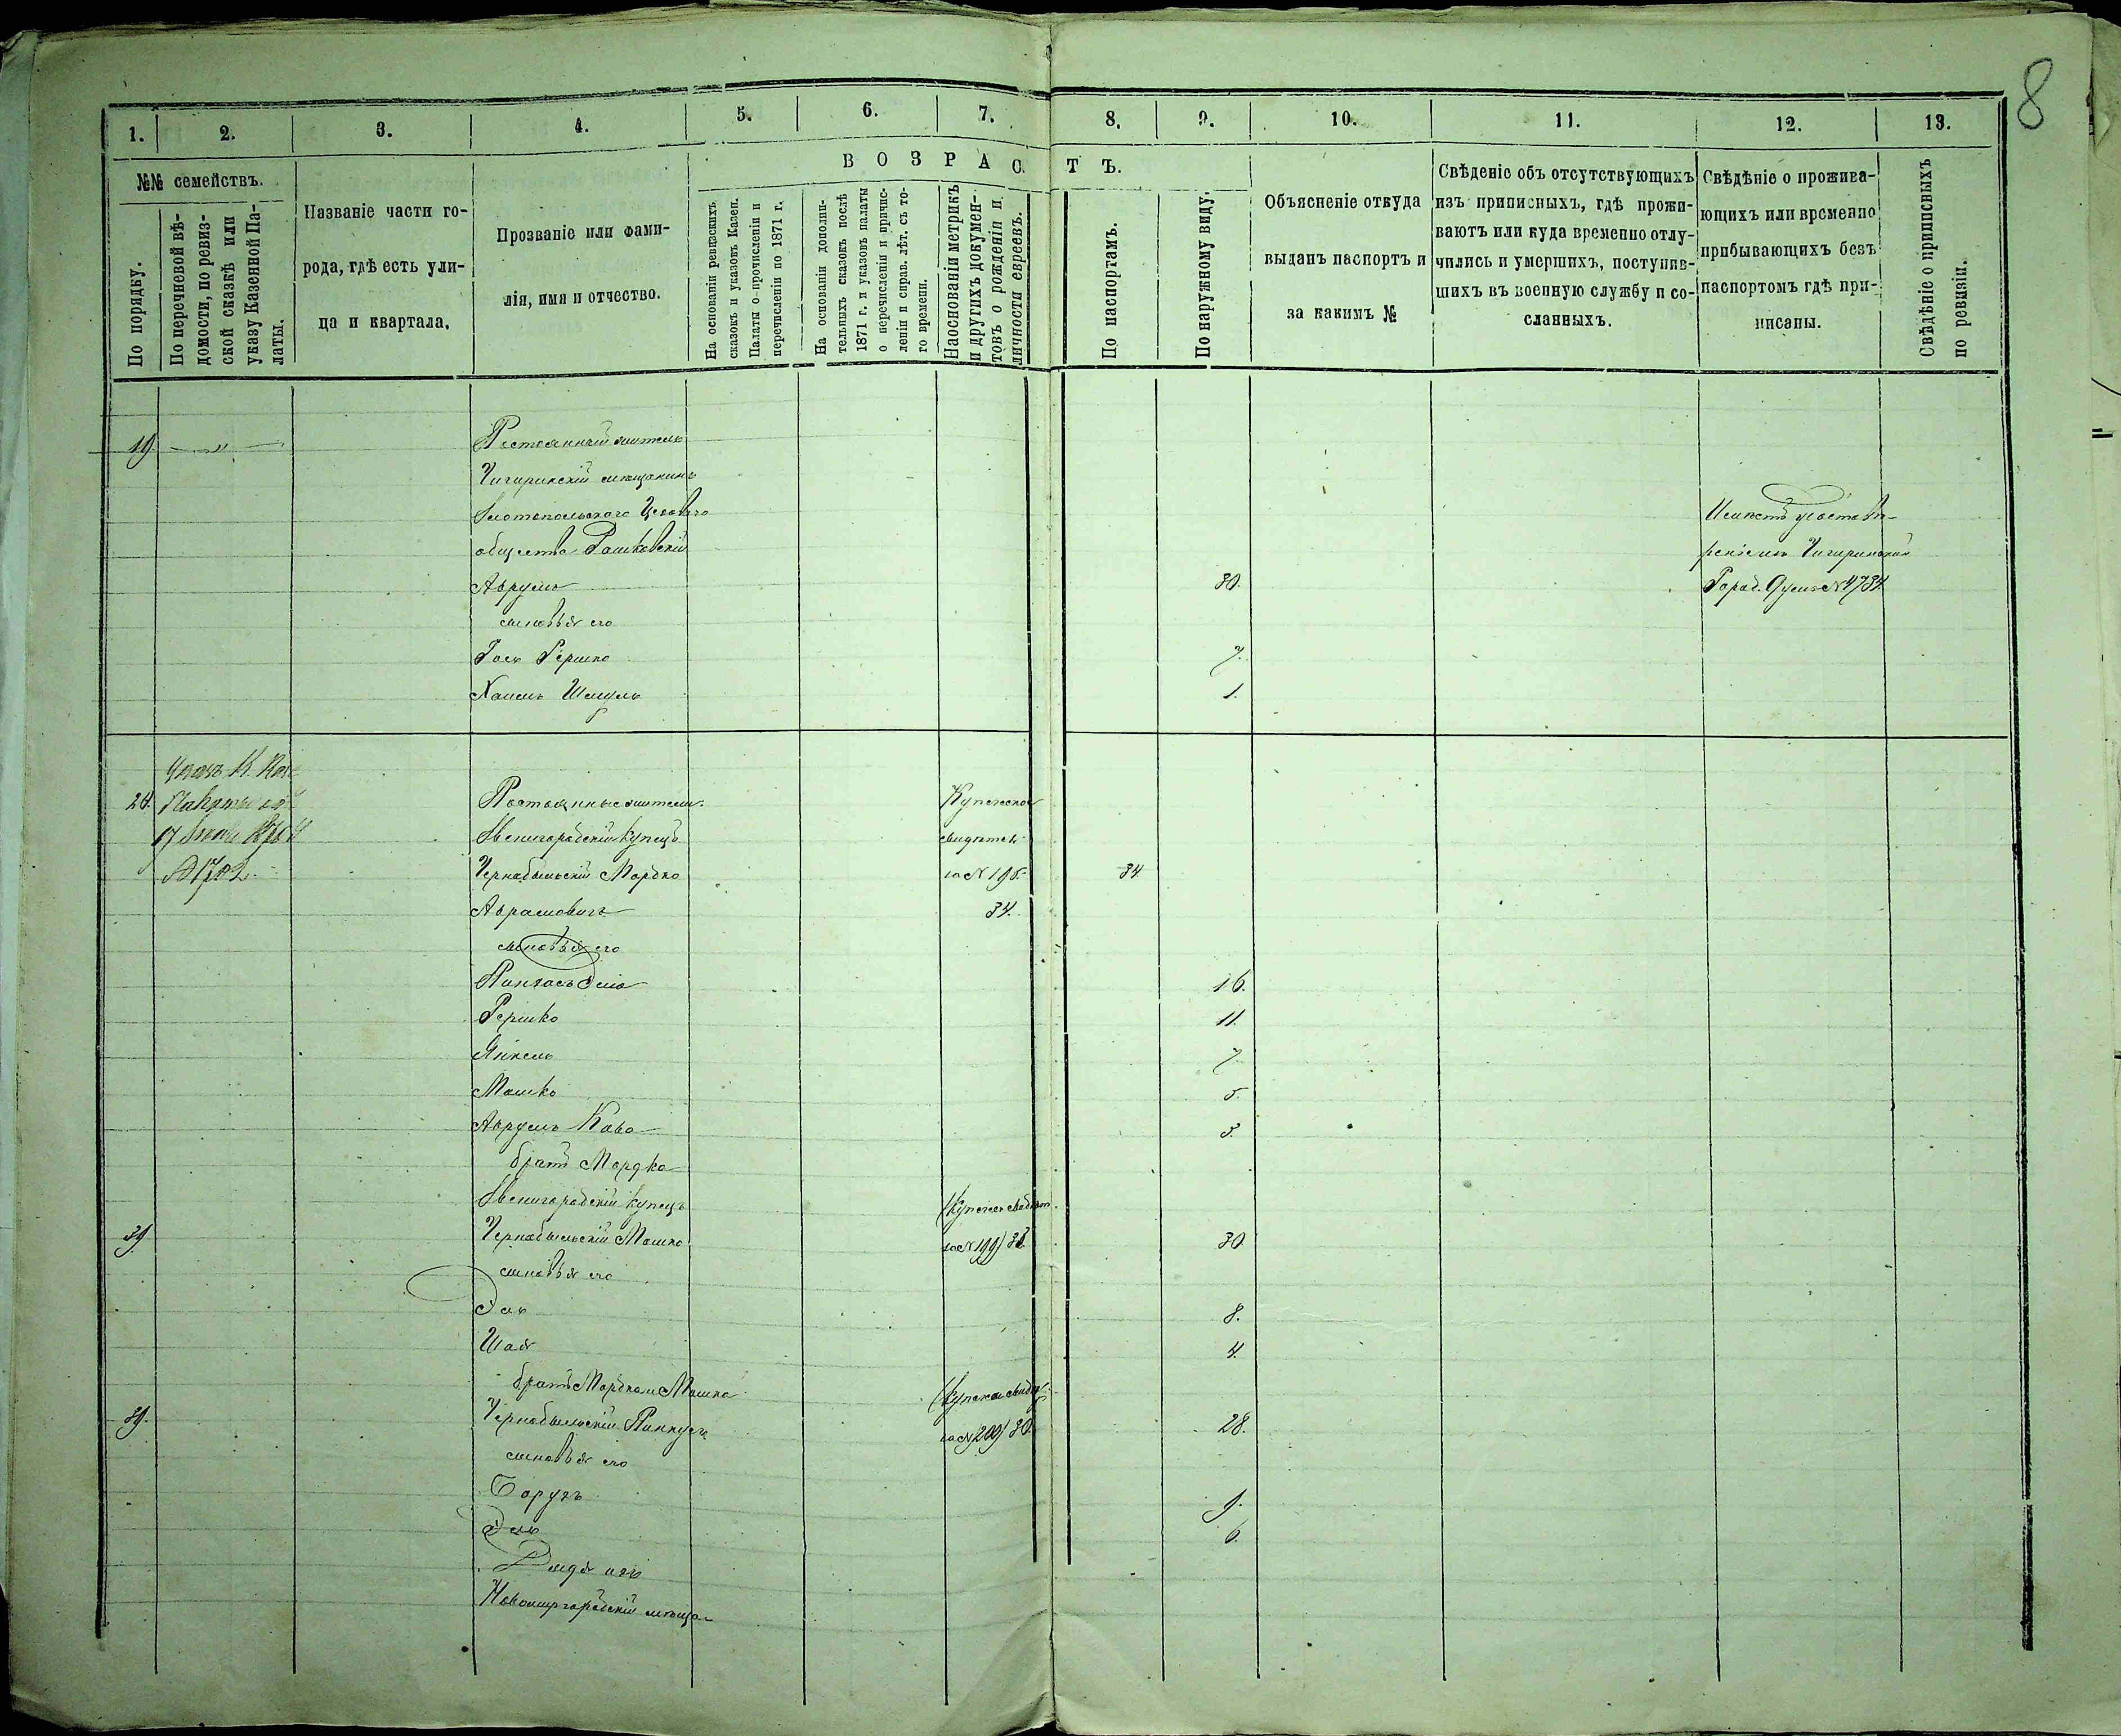 8
1. 2. 3. 4. 5. 6. 7. 8. 9. 10. 11. 12. 13.
№№ семействъ.
По порядку.
По перечневой вѣ-
домости, по ревиз-
ской сказкѣ или
указу Казенной Па-
латы.
Названіе части го-
рода, гдѣ есть ули-
ца и квартала.
Прозваніе или фами-
лія, имя и отчество.
ВОЗРАСТЪ.
На основаніи ревизскихъ
сказокъ и указовъ Казен.
Палаты о прочисленіи и
перечисленіи по 1871 г.
На основаніи дополни-
тельныхъ сказокъ послѣ
1871 г. и указовъ палаты
о перечисленіи и причис-
леніи и справ. лѣт. съ то-
го времени.
На основаніи метрикъ
и другихъ докумен-
товъ о рожденіи и
личности евреевъ.
По паспортамъ.
По наружному виду.
Объясненіе откуда
выданъ паспортъ и
за какимъ №
Свѣденіе объ отсутствующихъ
изъ приписныхъ, гдѣ прожи-
ваютъ или куда временно отлу-
чились и умершихъ, поступив-
шихъ въ военную службу и со-
сланныхъ.
Свѣдѣніе о прожива-
ющихъ или временно
прибывающихъ безъ
паспортомъ гдѣ при-
писаны.
Свѣдѣніе о приписныхъ
по ревизіи.
19. — " — Постоянный житель
Чигиринскій мещанинъ
Златопольскаго Цеховаго
общества Рашковскій
Аврумъ 30.
сыновья его
Гось Гершко 7.
Хаимъ Шмуль 1.
Имѣетъ удостовѣ-
реніемъ Чигиринской
Город. Думы № 4734.
Указъ К.
24. Палаты
№ 1702.
Постоянные жители
Звенигородскій купецъ
Чернобыльскій Мордко 34
Аврамовичъ 34.
Купеческое
свидѣтель
за № 198.
сыновья его
Пинхасъ 16.
Гершко 11.
Янкель 7.
Мошко 5.
Аврумъ 3.
братъ Мордка
Звенигородскій купецъ
39 Чернобыльскій Мошко 30
(Купеческ
за № 199)
сыновья его
Эль 8.
Шая 4.
братъ Мордка и Мошка
39. Чернобыльскій Пинкусъ 28.
(Купеческ
за № 200) 30.
сыновья его
Борухъ 9.
Эль 6.
Дядя ихъ
Новомиргородскій мѣща-